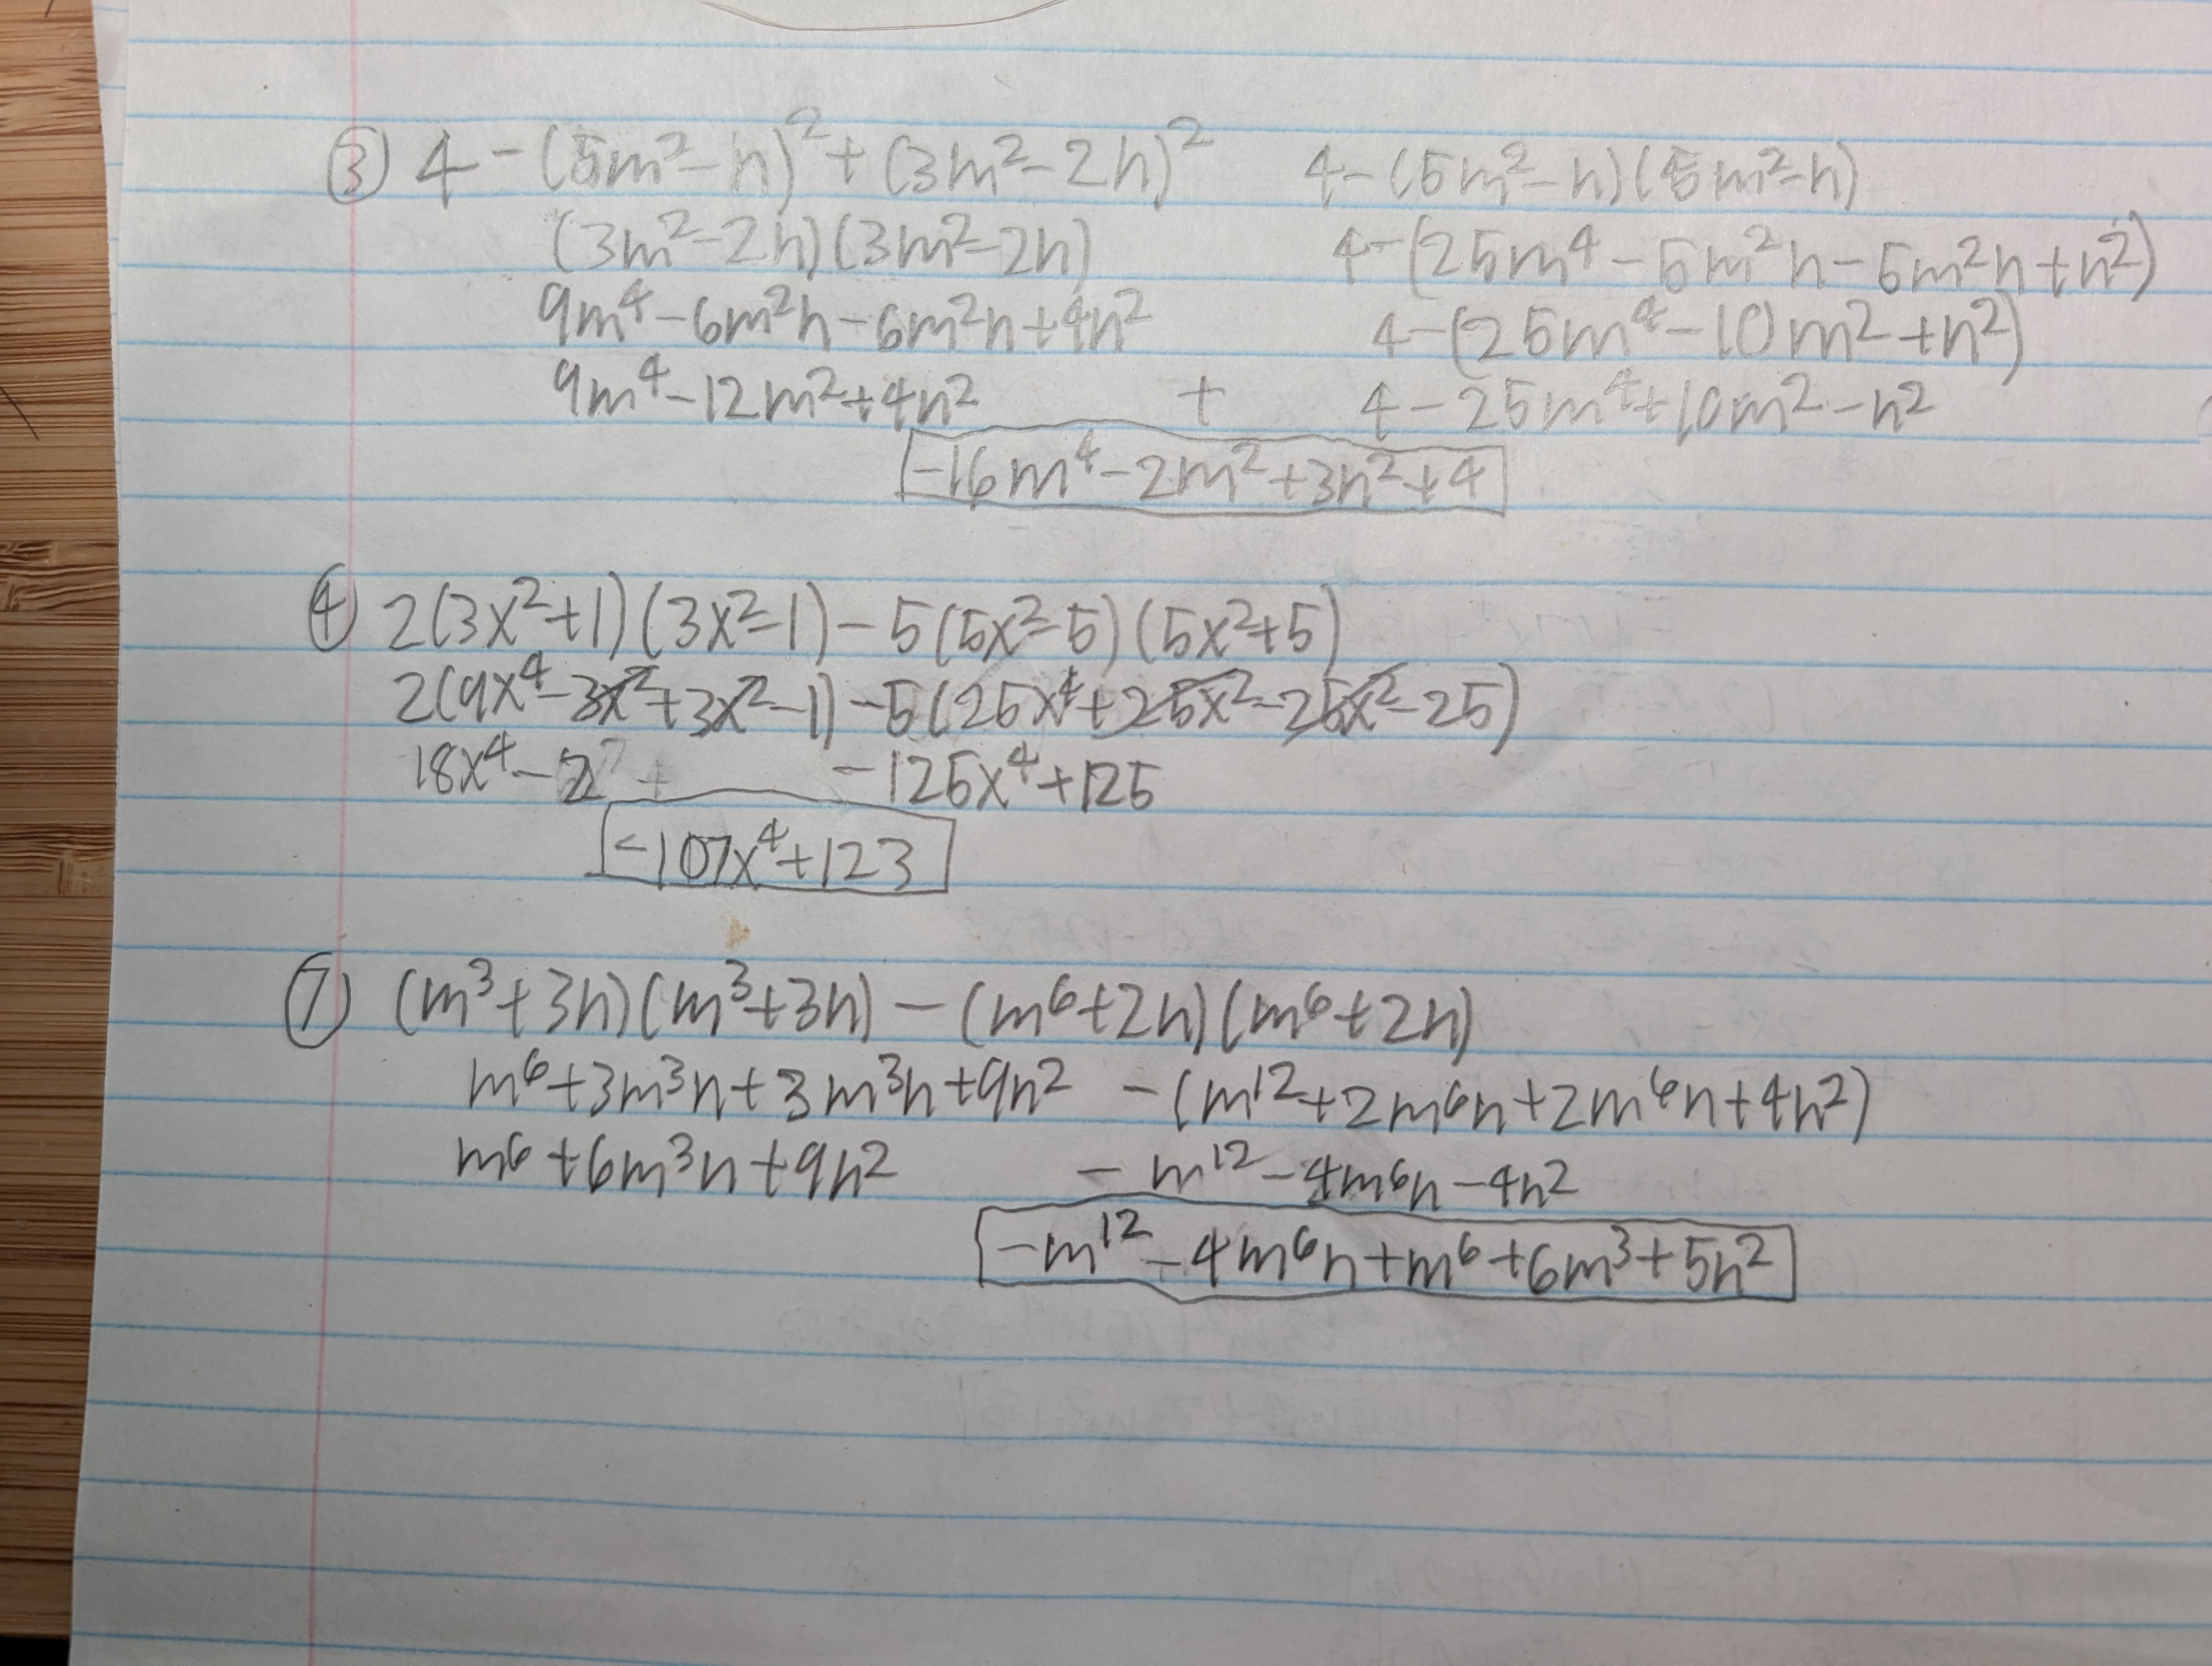 ③ 4 - (5m² - n)² + (3m² - 2n)² 4 - (5m² - n)(5m² - n)
(3m² - 2n)(3m² - 2n) 4 - (25m⁴ - 5m²n - 5m²n + n²)
9m⁴ - 6m²n - 6m²n + 4n² 4 - (25m⁴ - 10m² + n²)
9m⁴ - 12m² + 4n² + 4 - 25m⁴ + 10m² - n²
-16m⁴ - 2m² + 3n² + 4
④ 2(3x² + 1)(3x² - 1) - 5(5x² - 5)(5x² + 5)
2(9x⁴ - 3x² + 3x² - 1) - 5(25x⁴ + 25x² - 25x² - 25)
18x⁴ - 2 - 125x⁴ + 125
-107x⁴ + 123
⑦ (m³ + 3n)(m³ + 3n) - (m⁶ + 2n)(m⁶ + 2n)
m⁶ + 3m³n + 3m³n + 9n² - (m¹² + 2m⁶n + 2m⁶n + 4n²)
m⁶ + 6m³n + 9n² - m¹² - 4m⁶n - 4n²
-m¹² - 4m⁶n + m⁶ + 6m³ + 5n²